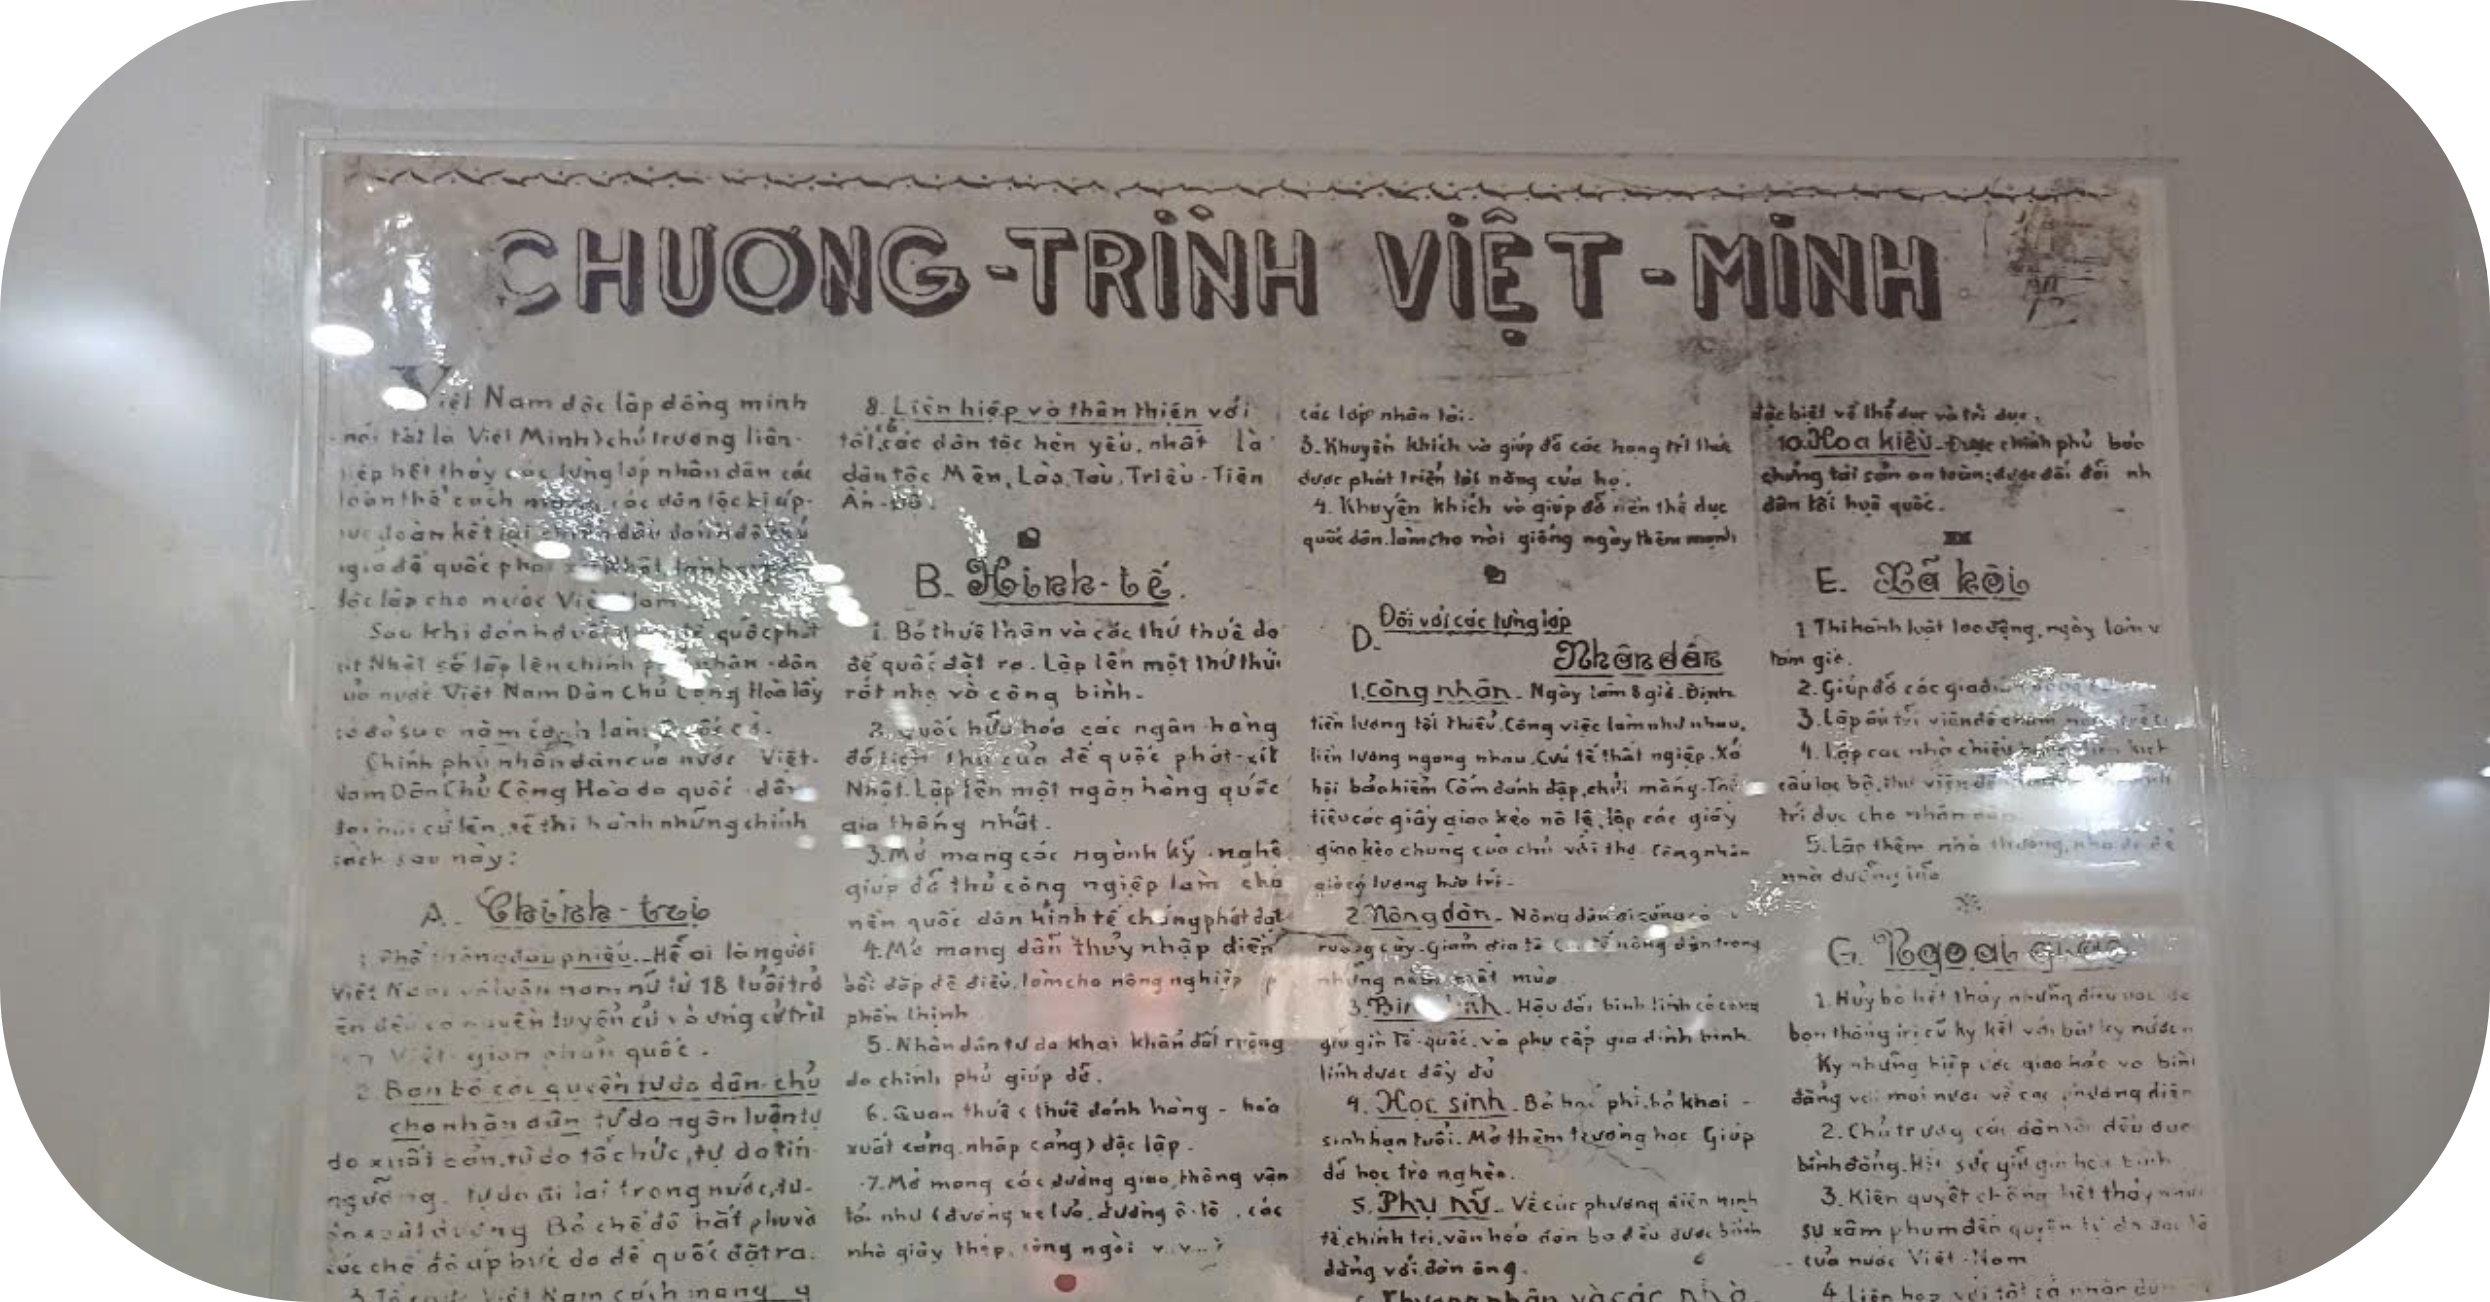 CHƯƠNG-TRÌNH VIỆT-MINH
Việt Nam độc lập đồng minh
nói tắt là Việt Minh) chủ trương liên-
hết thảy các từng lớp nhân dân các
đế quốc
độc lập cho nước Việt Nam
Sau khi đánh đuổi quốc phát
Nhật sẽ lập lên chính nhân-dân
nước Việt Nam Dân Chủ Cộng Hoà lấy
năm cánh làm Quốc cờ.
Chính phủ nhân dân của nước Việt-
Nam Dân Chủ Cộng Hoà do quốc-dân
cử lên, sẽ thi hành những chính
sách sau này:
A. Chính-trị
1. Phổ thông đầu phiếu. Hễ ai là người
Việt Nam nam nữ từ 18 tuổi trở
quyền tuyển cử và ứng cử trừ
Việt-gian phản quốc.
2. Ban bố các quyền tự do dân-chủ
cho nhân dân tự do ngôn luận tự
do xuất bản, tự do tổ chức, tự do tín-
ngưỡng. tự do đi lại trong nước, tự-
xuất dương Bỏ chế độ bắt phu và
các chế độ áp bức do đế quốc đặt ra.
Việt Nam cách mạng
8. Liên hiệp và thân thiện với
tất cả các dân tộc hèn yếu, nhất là
dân tộc Mên, Lào, Tàu, Triều-Tiên
Ấn-Độ.
B. Kinh-tế.
1. Bỏ thuế thân và các thứ thuế do
đế quốc đặt ra. Lập lên một thứ thuế
rất nhẹ và công bình.
2. Quốc hữu hoá các ngân-hàng
của đế quốc phát-xít
Nhật. Lập lên một ngân hàng quốc
gia thống nhất.
3. Mở mang các ngành kỹ-nghệ
giúp đỡ thủ công ngiệp làm cho
nền quốc dân kinh tế chóng phát đạt
4. Mở mang dẫn thủy nhập điền
bồi đắp đê điều, làm cho nông nghiệp
phồn thịnh
5. Nhân dân tự do khai khẩn đất ruộng
do chính phủ giúp đỡ.
6. Quan thuế (thuế đánh hàng-hoá
xuất cảng, nhập cảng) độc lập.
7. Mở mang các đường giao thông vận
tải như (đường xe lửa, đường ô-tô, các
nhà giây thép, sông ngòi v.v...)
các lớp nhân tài.
3. Khuyến khích và giúp đỡ các hạng trí thức
được phát triển tài năng của họ.
4. Khuyến khích và giúp đỡ nền thể dục
quốc dân. làm cho nòi giống ngày thêm mạnh
D. Đối với các từng lớp
Nhân dân
1. Công nhân. Ngày làm 8 giờ. Định
tiền lương tối thiểu. Công việc làm như nhau,
tiền lương ngang nhau. Cứu tế thất ngiệp. Xã
hội bảo hiểm Cấm đánh đập, chửi mắng.
tiêu các giấy giao kèo nô lệ, lập các giấy
giao kèo chung của chủ với thợ. Công nhân
già có lương hưu trí.
2. Nông dân. Nông dân ai cũng có
ruộng cày. Giảm địa tô cứu tế nông dân trong
những năm mất mùa
3. Binh lính. Hậu đãi binh lính có công
giữ gìn Tổ-quốc, và phụ cấp gia đình binh
lính được đầy đủ
4. Học sinh. Bỏ học phí, bỏ khai-
sinh hạn tuổi. Mở thêm trường học Giúp
đỡ học trò nghèo.
5. Phụ nữ. Về các phương diện kinh
tế, chính trị, văn hoá đàn bà đều được bình
đẳng với đàn ông.
và các nhà
đặc biệt về thể dục và trí dục.
10. Hoa kiều. Được chính phủ bảo
chứng tài sản an toàn; được đối đãi
dân tối huệ quốc.
E. Xã hội
1 Thi hành luật lao động, ngày làm
tám giờ.
2. Giúp đỡ các gia đình
3. Lập ấu trĩ viện để chăm
4. Lập các nhà chiếu kịch
câu lạc bộ, thư viện để
trí dục cho nhân dân
5. Lập thêm nhà thương, nhà đỡ đẻ
nhà dưỡng lão
G. Ngoại giao.
1. Hủy bỏ hết thảy những điều ước
bọn thống trị cũ ký kết với bất kỳ nước
Ký những hiệp ước giao hảo và bình
đẳng với mọi nước về các phương diện
2. Chủ trương các dân tộc đều được
bình đẳng. Hết sức giữ gìn hoà bình
3. Kiên quyết chống hết thảy
sự xâm phạm đến quyền tự do độc lập
của nước Việt-Nam
4. Liên hợp với tất cả nhân dân